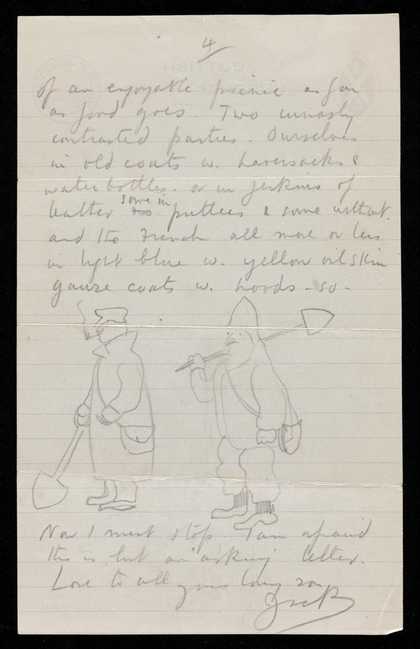 4
of an enjoyable picnic as far
as food goes. Two curiously
contrasted parties. Ourselves
in old coats w. haversacks &
waterbottles - or in jerkins of
leather some in puttees & some without.
and the French all more or less
in light blue w. yellow oilskin
gauze coats w. hoods - so -
Now I must stop. I am afraid
this is but an asking letter.
Love to all your loving son